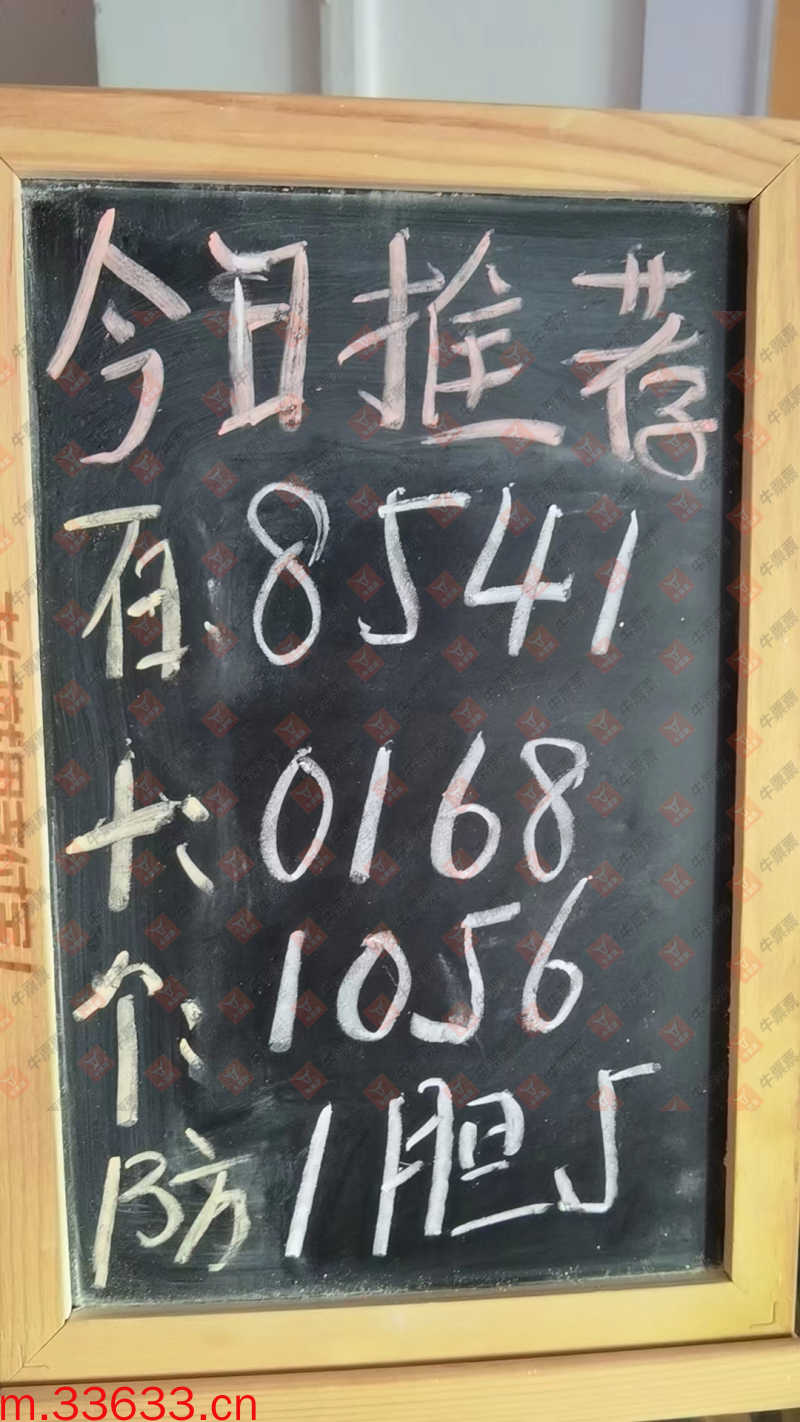 今日推荐
百、8541
十：0168
个：1056
防1胆5
m.33633.cn
牛票票